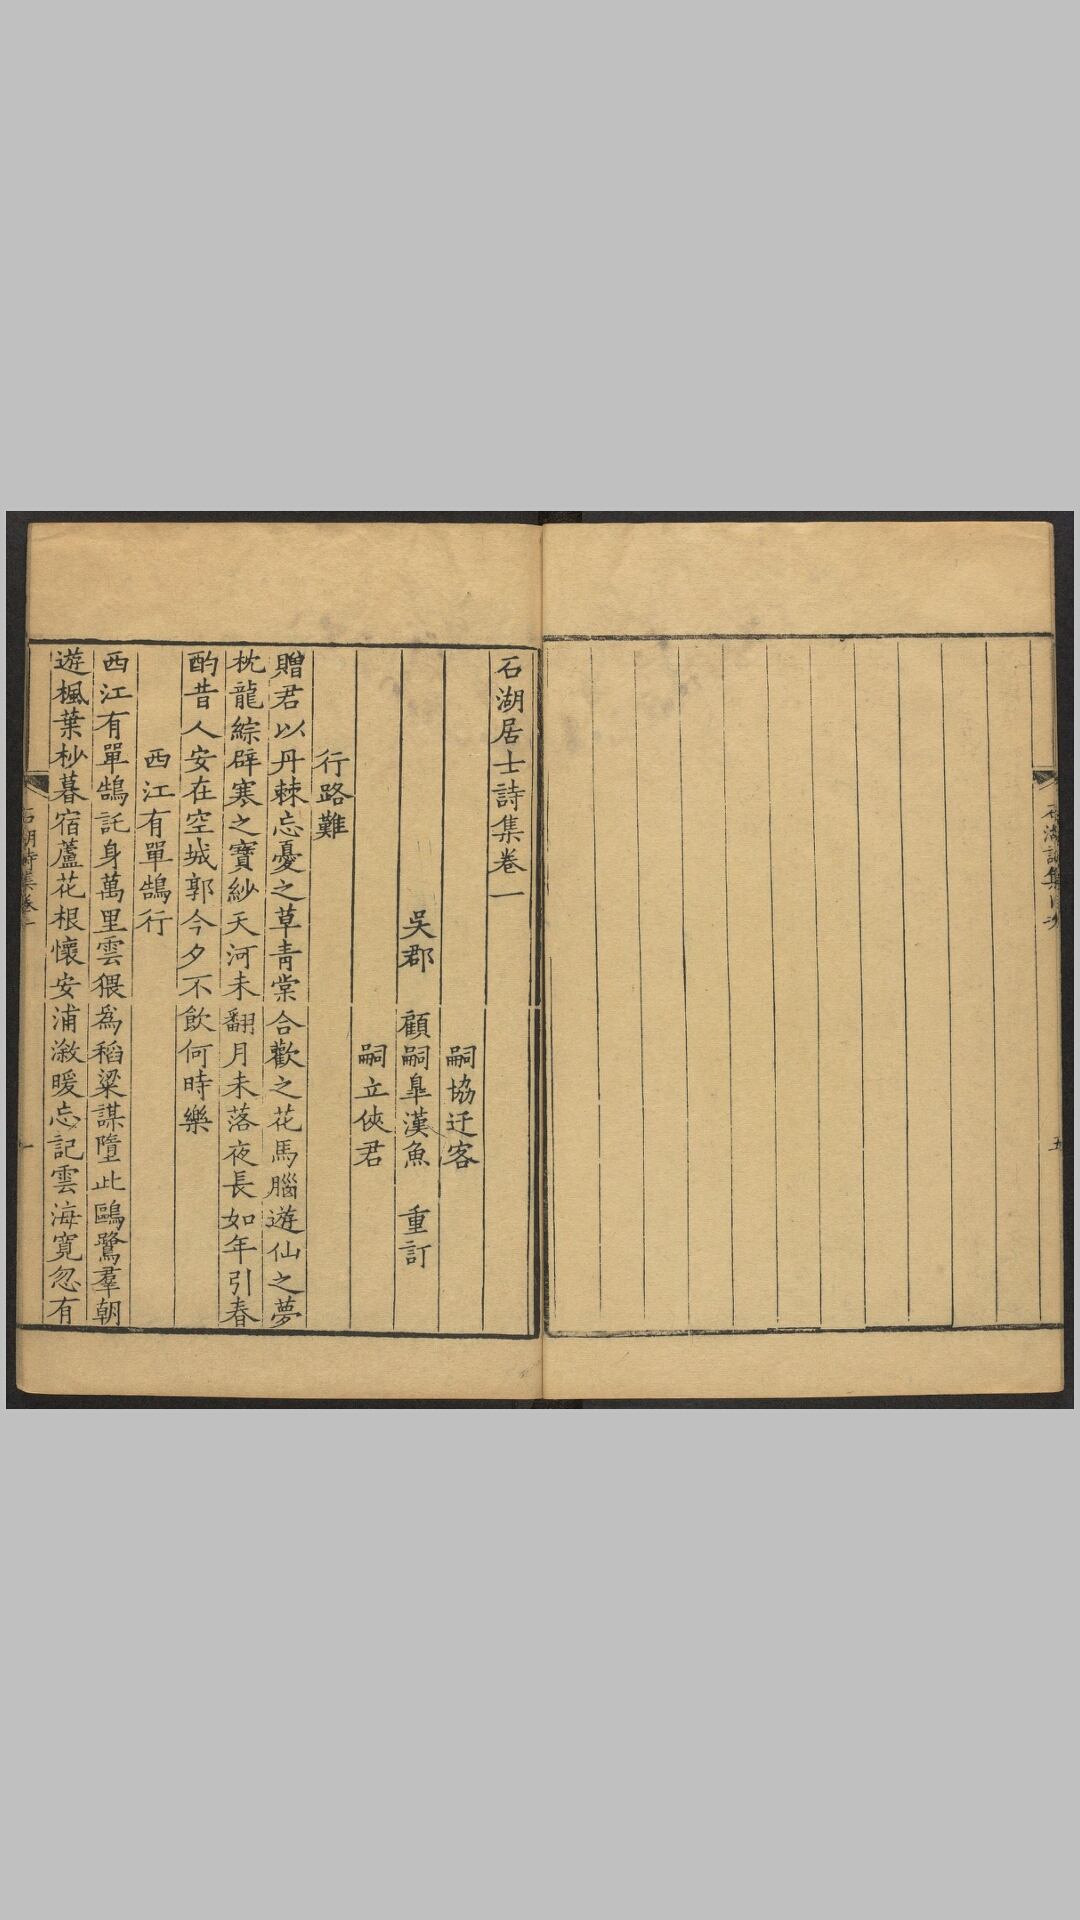 石湖詩集目次
五
石湖居士詩集卷一
嗣協迂客
吳郡 顧嗣臯漢魚 重訂
嗣立俠君
行路難
贈君以丹棘忘憂之草青棠合歡之花馬腦遊仙之夢
枕龍綜辟寒之寶紗天河未翻月未落夜長如年引春
酌昔人安在空城郭今夕不飲何時樂
西江有單鵠行
西江有單鵠託身萬里雲猥爲稻粱謀墮此鷗鷺羣朝
遊楓葉杪暮宿蘆花根懷安浦漵暖忘記雲海寬忽有
石湖詩集卷一
一